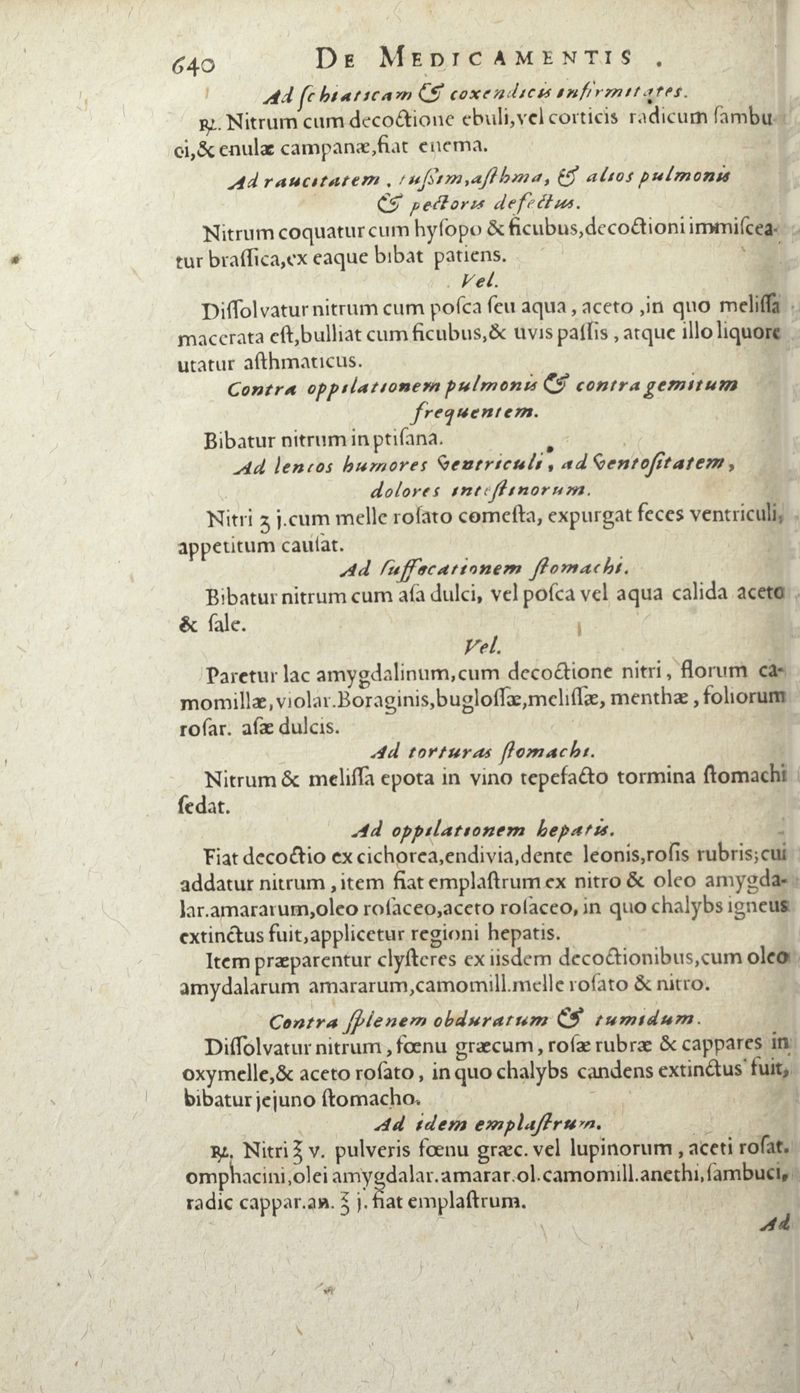 640 DE MEDICAMENTIS .
Ad sc hiaticam & coxendicis infirmitates.
℞. Nitrum cum decoctione ebuli,vel corticis radicum sambu
ci,& enulæ campanæ,fiat enema.
Ad raucitatem , tussim,asthma, & alios pulmonis
& pectoris defectus.
Nitrum coquatur cum hysopo & ficubus,decoctioni immiscea-
tur brassica,ex eaque bibat patiens.
Vel.
Dissolvatur nitrum cum posca seu aqua , aceto ,in quo melissa
macerata est,bulliat cum ficubus,& uvis passis , atque illo liquore
utatur asthmaticus.
Contra oppilationem pulmonis & contra gemitum
frequentem.
Bibatur nitrum in ptisana.
Ad lentos humores ventriculi , ad ventositatem ,
dolores intestinorum.
Nitri ʒ j.cum melle rosato comesta, expurgat feces ventriculi,
appetitum causat.
Ad suffocationem stomachi.
Bibatur nitrum cum asa dulci, vel posca vel aqua calida aceto
& sale.
Vel.
Paretur lac amygdalinum,cum decoctione nitri , florum ca-
momillæ,violar.Boraginis,buglossæ,melissæ, menthæ , foliorum
rosar. asæ dulcis.
Ad torturas stomachi.
Nitrum & melissa epota in vino tepefacto tormina stomachi
sedat.
Ad oppilationem hepatis.
Fiat decoctio ex cichorea,endivia,dente leonis,rosis rubris;cui
addatur nitrum , item fiat emplastrum ex nitro & oleo amygda-
lar.amararum,oleo rosaceo,aceto rosaceo, in quo chalybs igneus
extinctus fuit,applicetur regioni hepatis.
Item præparentur clysteres ex iisdem decoctionibus,cum oleo
amydalarum amararum,camomill.melle rosato & nitro.
Contra splenem obduratum & tumidum.
Dissolvatur nitrum , fœnu græcum , rosæ rubræ & cappares in
oxymelle,& aceto rosato , in quo chalybs candens extinctus fuit,
bibatur jejuno stomacho.
Ad idem emplastrum.
℞. Nitri ℥ v. pulveris fœnu græc. vel lupinorum , aceti rosat.
omphacini,olei amygdalar.amarar.ol.camomill.anethi,sambuci,
radic cappar.an. ℥ j. fiat emplastrum.
Ad